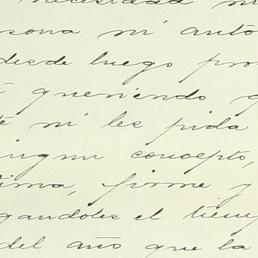 necesitada ni
sona ni auto
desde luego pro
queriendo
ni les pida
ingun concepto,
tima, firme y
gandoles el tiem
del año que la